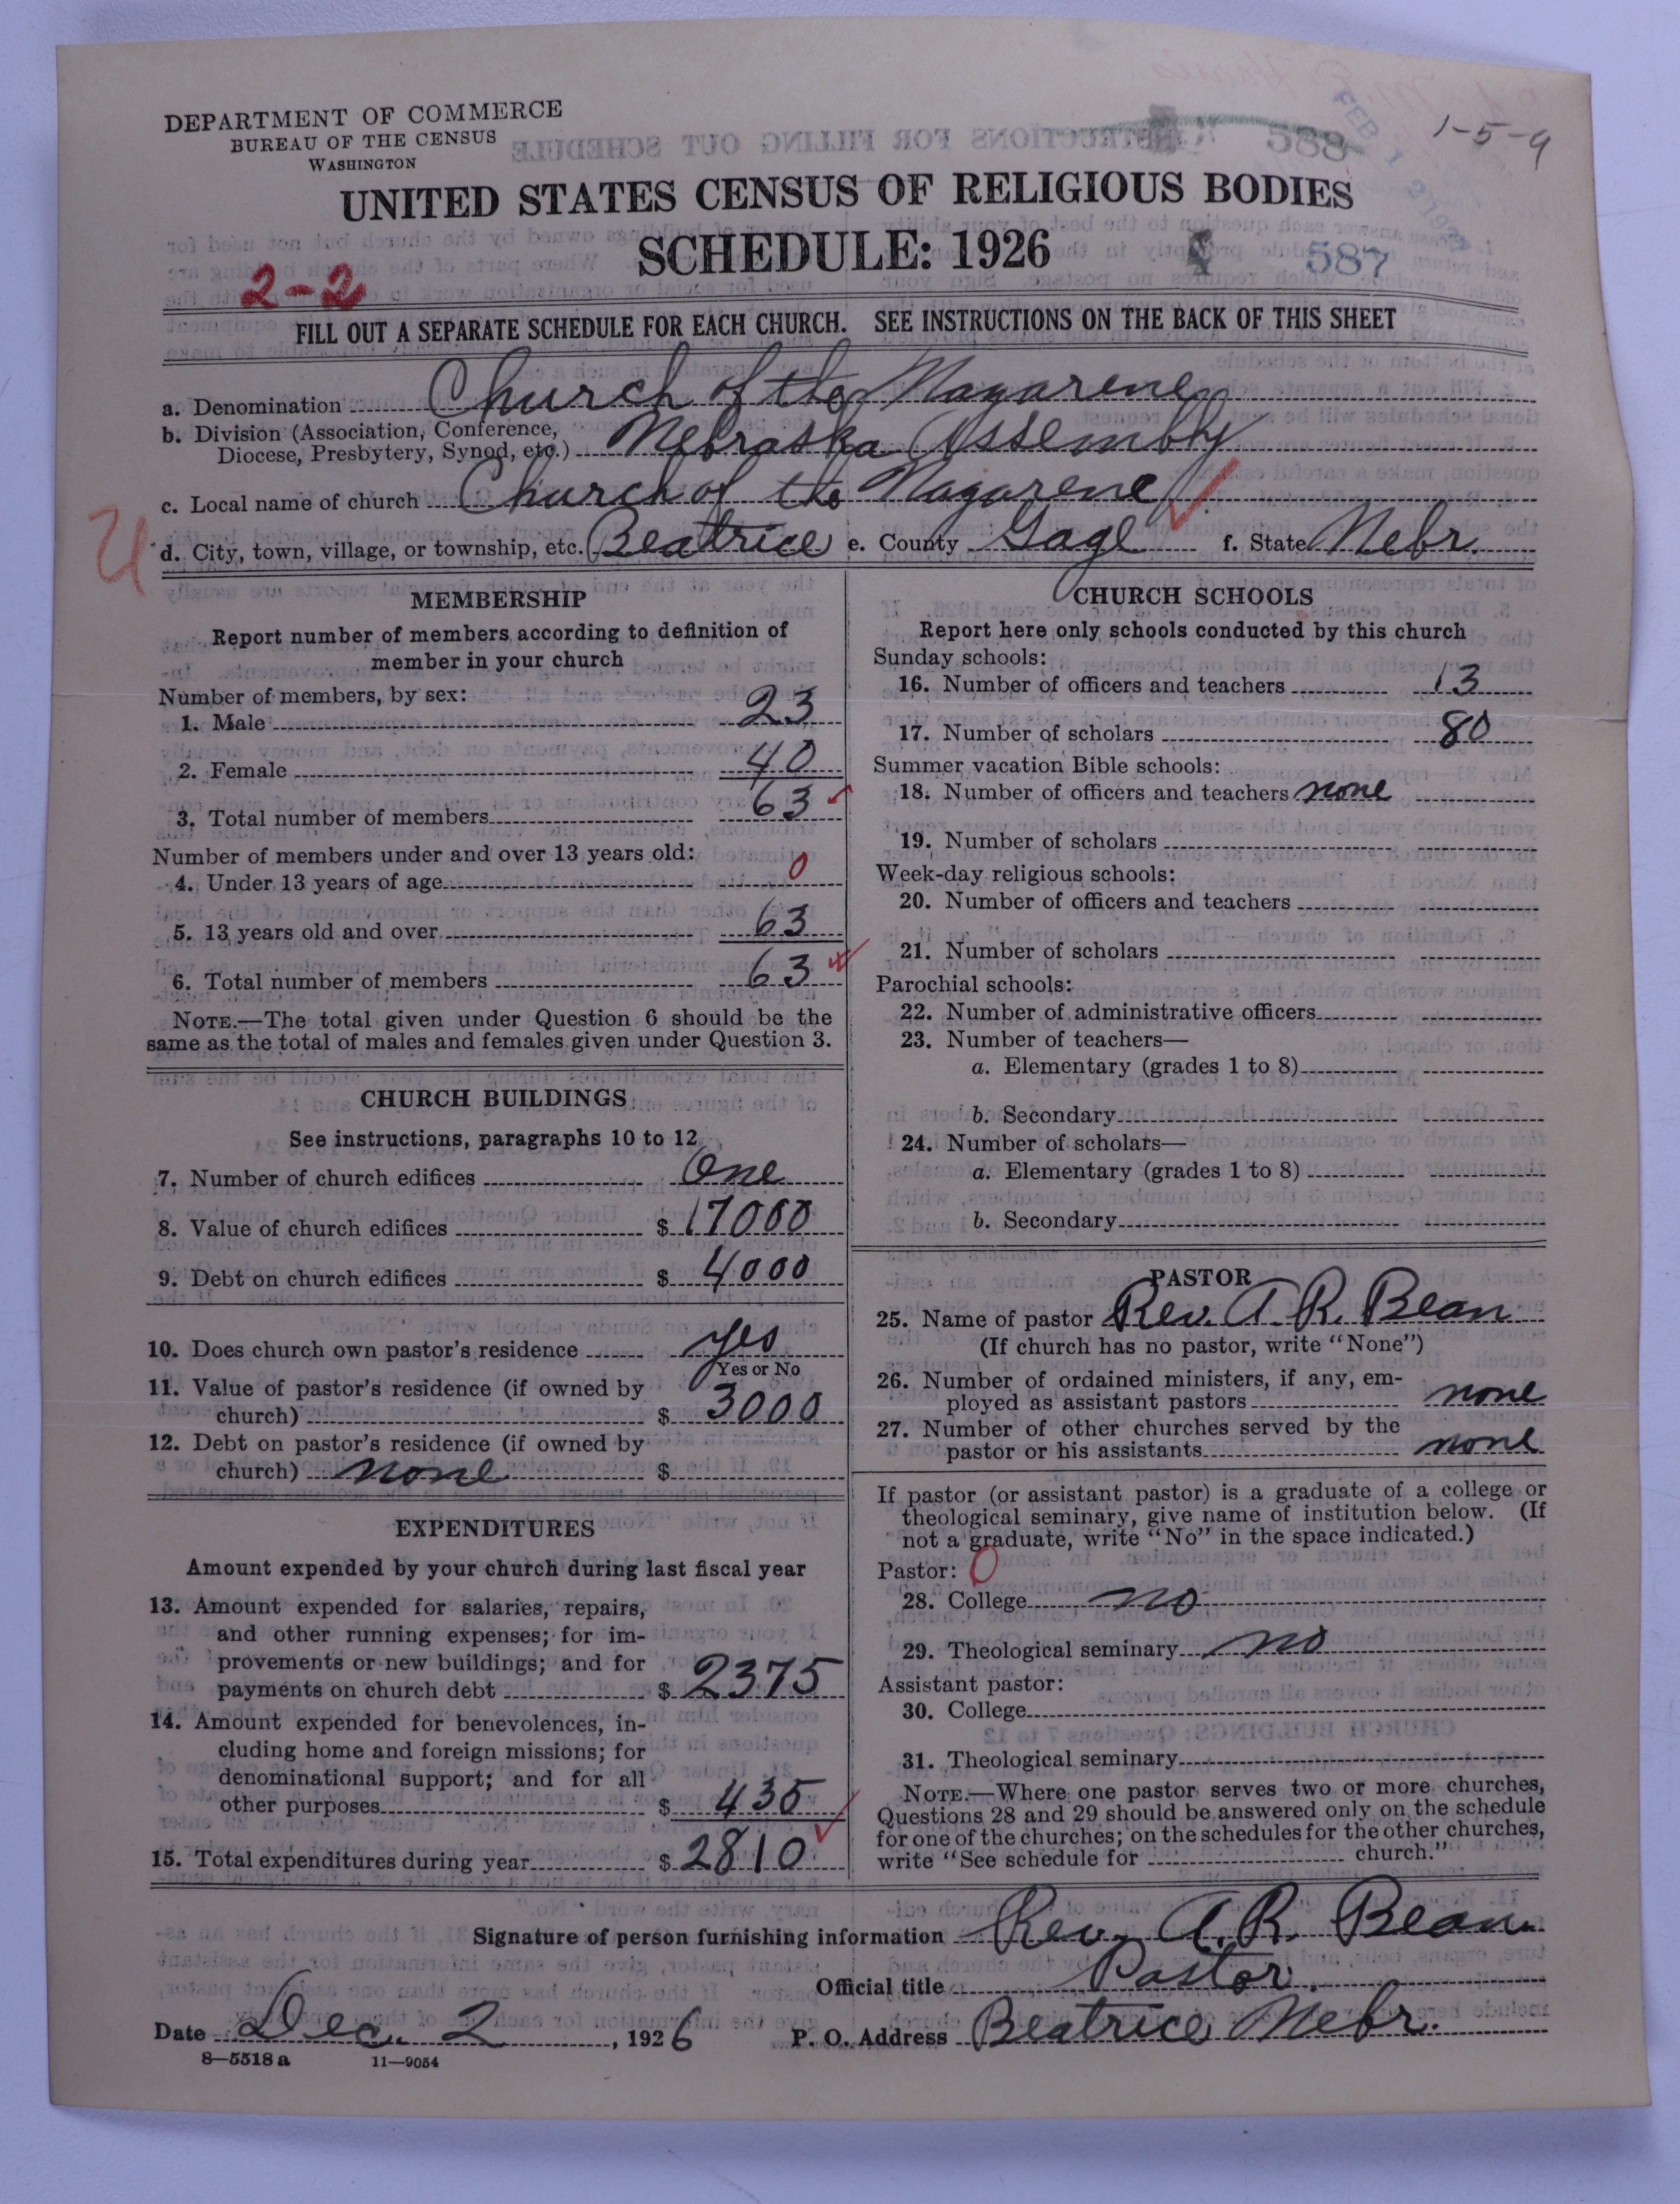 DEPARTMENT OF COMMERCE
BUREAU OF THE CENSUS
WASHINGTON
1-5-9
588
UNITED STATES CENSUS OF RELIGIOUS BODIES
SCHEDULE: 1926
587
2-2
FILL OUT A SEPARATE SCHEDULE FOR EACH CHURCH. SEE INSTRUCTIONS ON THE BACK OF THIS SHEET
a. Denomination Church of the Nazarene
b. Division (Association, Conference,
Diocese, Presbytery, Synod, etc.) Nebraska Assembly
c. Local name of church Church of the Nazarene
d. City, town, village, or township, etc. Beatrice e. County Gage f. State Nebr.
MEMBERSHIP
Report number of members according to definition of
member in your church
Number of members, by sex:
1. Male 23
2. Female 40
3. Total number of members 63
Number of members under and over 13 years old:
4. Under 13 years of age 0
5. 13 years old and over 63
6. Total number of members 63
NOTE.—The total given under Question 6 should be the
same as the total of males and females given under Question 3.
CHURCH BUILDINGS
See instructions, paragraphs 10 to 12
7. Number of church edifices One
8. Value of church edifices $ 17000
9. Debt on church edifices $ 4000
10. Does church own pastor's residence yes
Yes or No
11. Value of pastor's residence (if owned by
church) $ 3000
12. Debt on pastor's residence (if owned by
church) none $
EXPENDITURES
Amount expended by your church during last fiscal year
13. Amount expended for salaries, repairs,
and other running expenses; for im-
provements or new buildings; and for
payments on church debt $ 2375
14. Amount expended for benevolences, in-
cluding home and foreign missions; for
denominational support; and for all
other purposes $ 435
15. Total expenditures during year $ 2810
CHURCH SCHOOLS
Report here only schools conducted by this church
Sunday schools:
16. Number of officers and teachers 13
17. Number of scholars 80
Summer vacation Bible schools:
18. Number of officers and teachers none
19. Number of scholars
Week-day religious schools:
20. Number of officers and teachers
21. Number of scholars
Parochial schools:
22. Number of administrative officers
23. Number of teachers—
a. Elementary (grades 1 to 8)
b. Secondary
24. Number of scholars—
a. Elementary (grades 1 to 8)
b. Secondary
PASTOR
25. Name of pastor Rev. A. R. Bean
(If church has no pastor, write "None")
26. Number of ordained ministers, if any, em-
ployed as assistant pastors none
27. Number of other churches served by the
pastor or his assistants none
If pastor (or assistant pastor) is a graduate of a college or
theological seminary, give name of institution below. (If
not a graduate, write "No" in the space indicated.)
Pastor: 0
28. College no
29. Theological seminary no
Assistant pastor:
30. College
31. Theological seminary
NOTE.—Where one pastor serves two or more churches,
Questions 28 and 29 should be answered only on the schedule
for one of the churches; on the schedules for the other churches,
write "See schedule for church."
Signature of person furnishing information Rev. A. R. Bean
Official title Pastor.
Date Dec. 2, 1926 P. O. Address Beatrice Nebr.
8—5518 a 11—9054